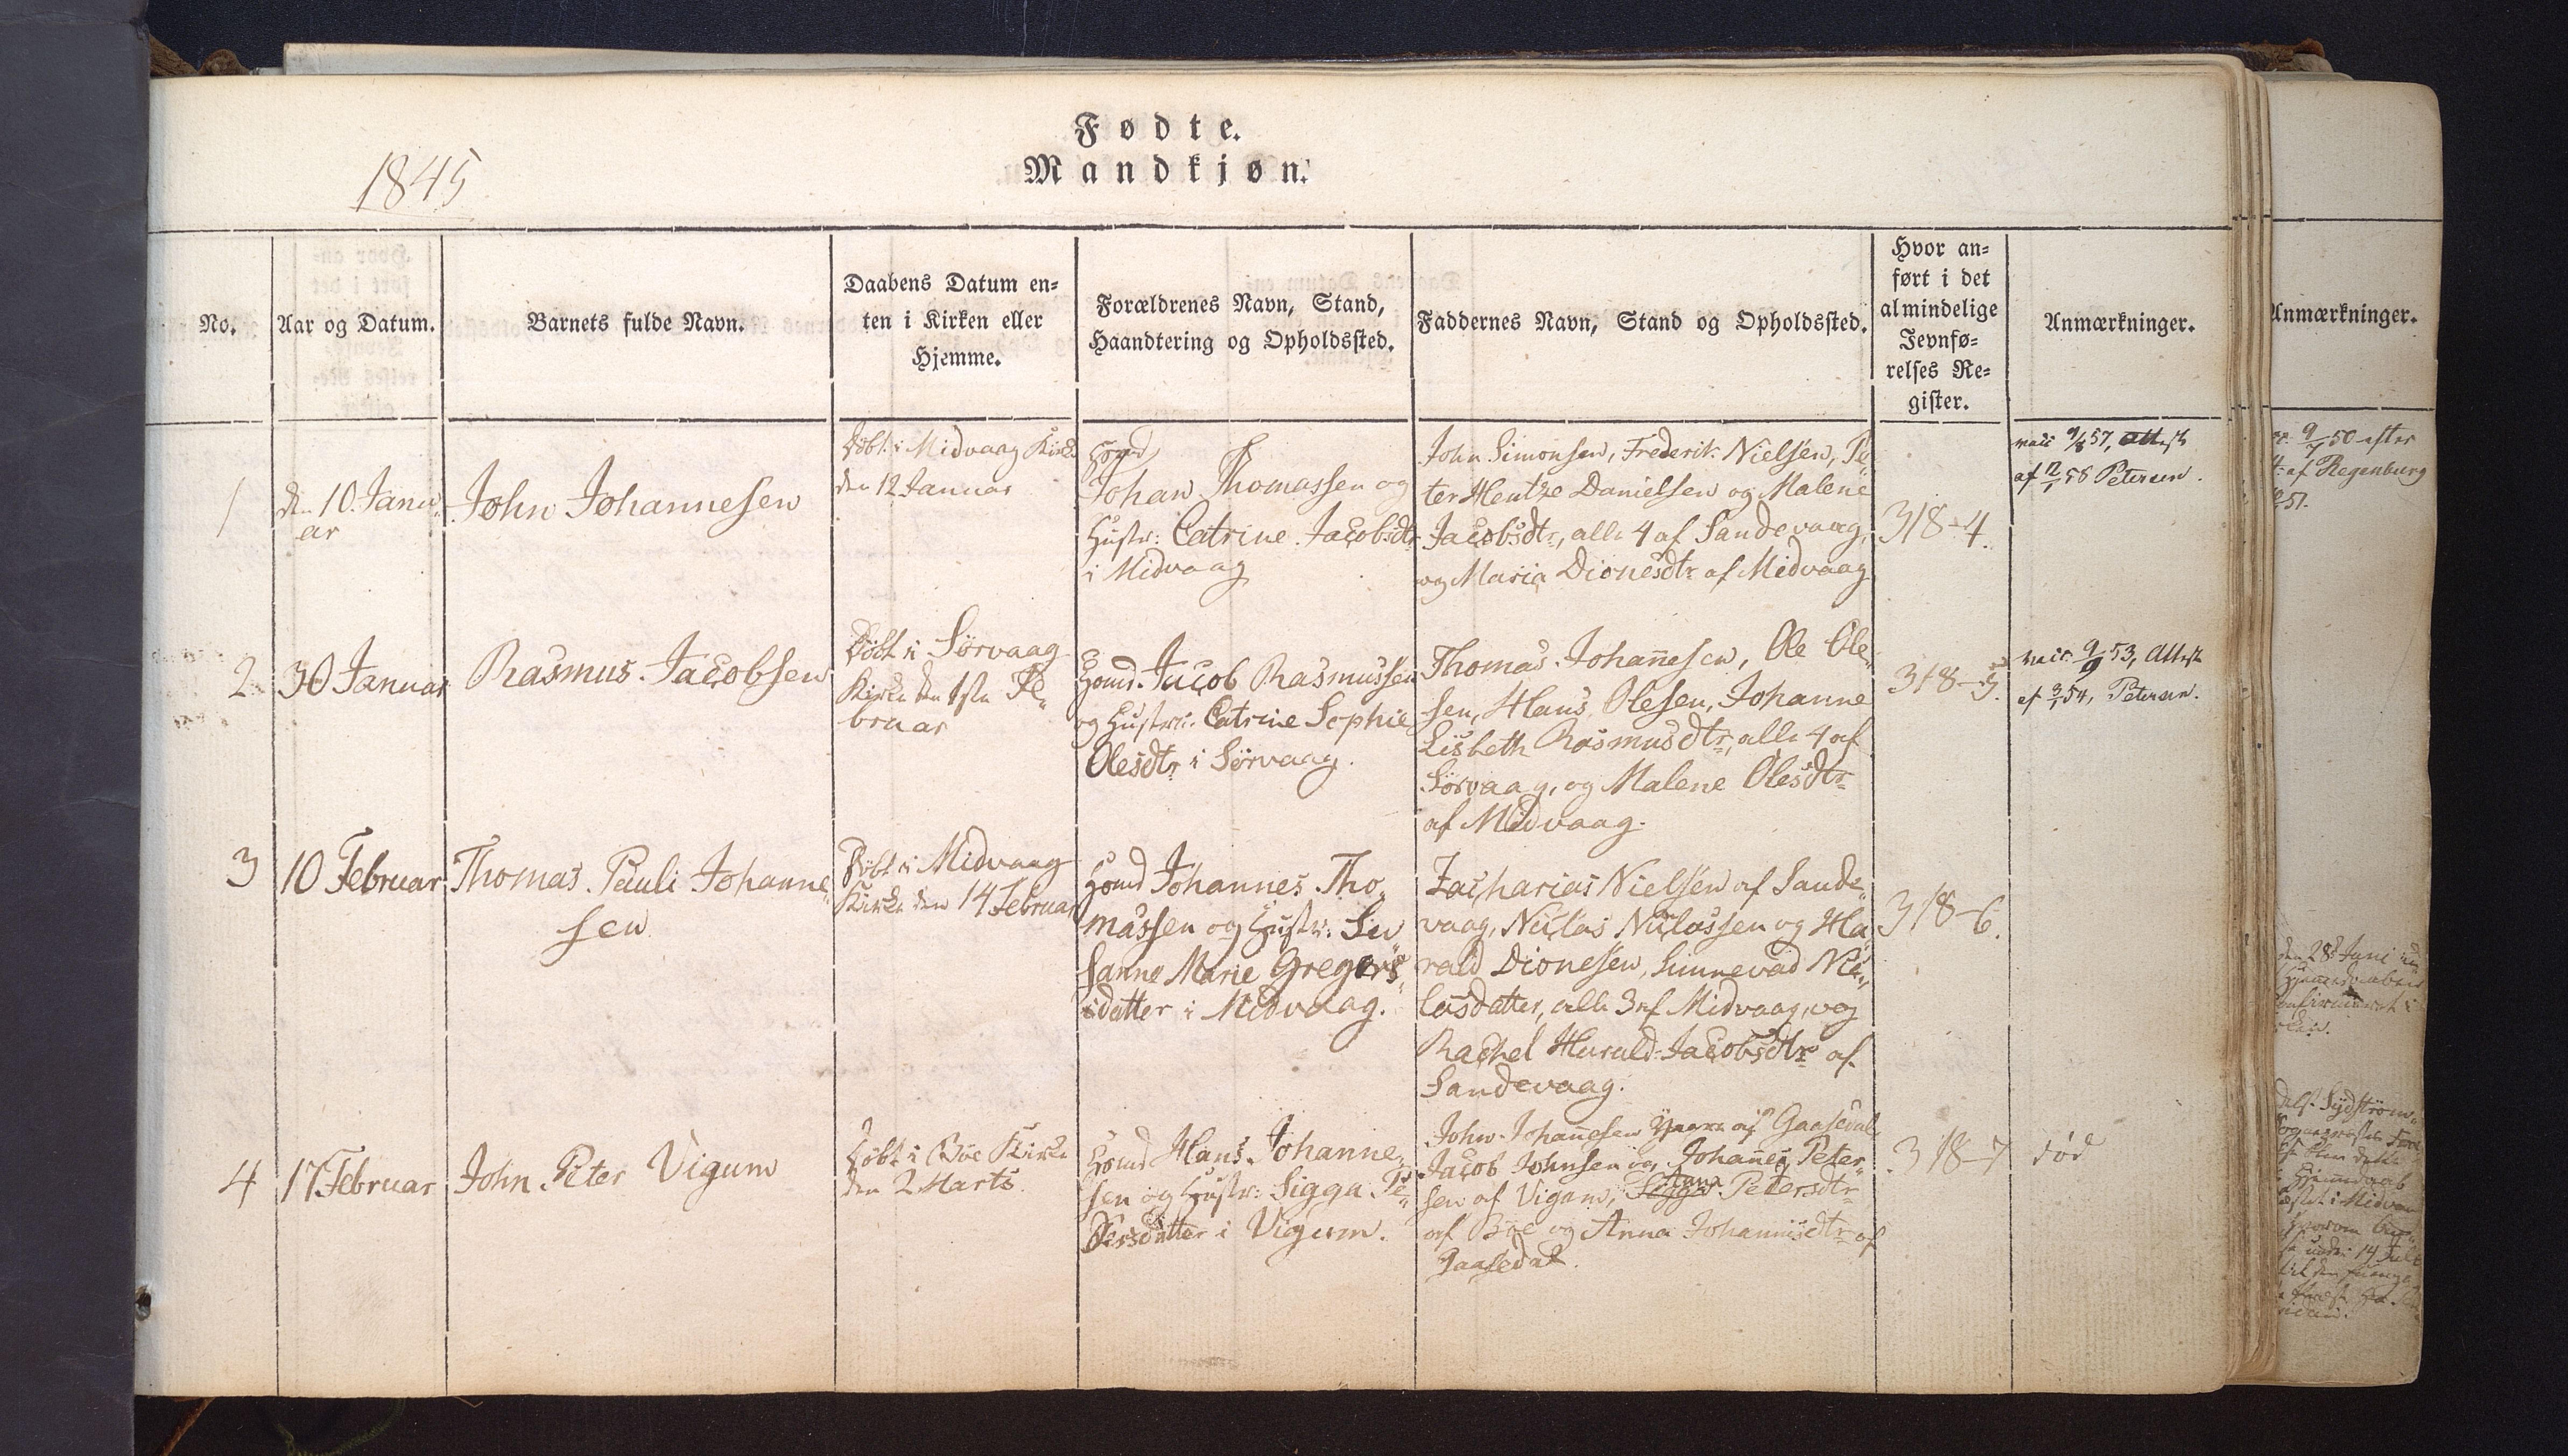 Fødte.
Mandkjøn.
1845
No.
Aar og Datum.
Barnets fulde Navn.
Daabens Datum en-
ten i Kirken eller
Hjemme.
Forældrenes Navn, Stand,
Haandtering og Opholdssted.
Faddernes Navn, Stand og Opholdssted.
Hvor an-
ført i det
almindelige
Jevnfø-
relses Re-
gister.
Anmærkninger.
Anmærkninger.
1
den 10. Janu-
ar
John Johannesen
Döbt i Midvaag Kirke
den 12 Januar
Gomd
Johan Thomassen og
Hustr: Catrine Jacobsdtr
i Midvaag
John Simonsen, Frederik Nielsen, Pe-
ter Hentze Danielsen og Malene
Jacobsdtr, alle 4 af Sandevaag,
og Maria Dionesdtr af Midvaag
318-4.
vacc 9/8 57, Attest
af 12/1 58 Petersen.
2
30 Januar
Rasmus Jacobsen
Döbt i Sörvaag
Kirke den 1ste Fe-
bruar
Gomd. Jacob Rasmussen
og Hustru: Catrine Sophie
Olesdtr i Sörvaag.
Thomas Johannesen, Ole Ole-
sen, Hans Olesen, Johanne
Lisbeth Rasmusdtr, alle 4 af
Sörvaag, og Malene Olesdtr
af Midvaag.
318-5.
vacc. 9/9 53, Attest
af 3/1 54, Petersen.
3
10 Februar
Thomas Pauli Johanne-
sen
Döbt i Midvaag
Kirke den 14 Februar
Gomd Johannes Tho-
massen og Hustr: Su-
sanne Marie Gregers-
sdatter i Midvaag.
Zacharias Nielsen af Sande-
vaag, Niclas Niclassen og Ha-
rald Dionesen, Sunnevad Nic-
lasdatter, alle 3 af Midvaag, og
Rachel Harald-Jacobsdtr af
Sandevaag.
318-6.
4
17 Februar
John Peter Vigum
Döbt i Böe Kirke
den 2 Marts
Gomd Hans Johanne-
sen og Hustr: Sigga Pe-
dersdatter i Vigum.
John Johannesen af Gaasedal
Jacob Johnsen og Johannes Peter-
sen af Vigum, Petersdtr
af Böe og Anna Johannisdtr af
Gaasedal.
318-7
död
9/7 50 efter
af Regenburg
51.
den 28 Juni
14 Juli